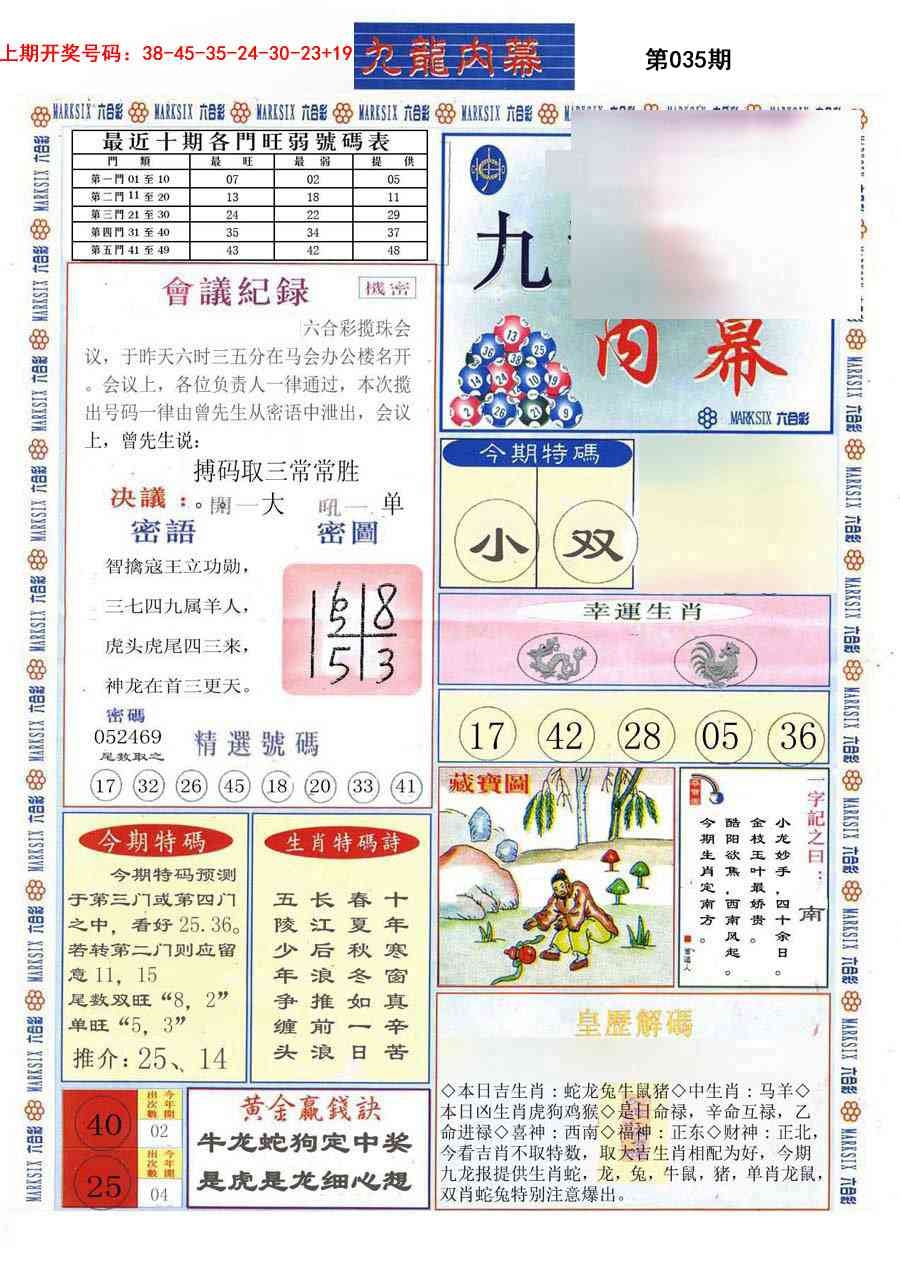 上期开奖号码：38-45-35-24-30-23+19
九龍内幕
第035期
MARKSIX 六合彩
最近十期各門旺弱號碼表
門 類 最 旺 最 弱 提 供
第一門 01 至 10 07 02 05
第二門 11 至 20 13 18 11
第三門 21 至 30 24 22 29
第四門 31 至 40 35 34 37
第五門 41 至 49 43 42 48
九
内幕
13
36 38 25
14 24 10 19
2 26 21 9
MARKSIX 六合彩
會議紀録
機密
六合彩揽珠会
议，于昨天六时三五分在马会办公楼名开
。会议上，各位负责人一律通过，本次揽
出号码一律由曾先生从密语中泄出，会议
上，曾先生说：
搏码取三常常胜
决議：。開一大 吼一 单
密語
智擒寇王立功勋，
三七四九属羊人，
虎头虎尾四三来，
神龙在首三更天。
密圖
6 8
5 3
密碼
052469
尾数取之
精選號碼
17 32 26 45 18 20 33 41
今期特碼
小 双
幸運生肖
17 42 28 05 36
藏寶圖
一字記之曰：南
小龙妙手，四十余日。
金枝玉叶最娇贵。
酷阳欲焦，西南风起。
今期生肖定南方。
今期特碼
今期特码预测
于第三门或第四门
之中，看好 25.36。
若转第二门则应留
意 11，15
尾数双旺“8，2”
单旺“5，3”
推介：25、14
生肖特碼詩
十年寒窗真辛苦
春夏秋冬如一日
长江后浪推前浪
五陵少年争缠头
40
今年開出次數
02
25
今年開出次數
04
黄金赢錢訣
牛龙蛇狗定中奖
是虎是龙细心想
皇歷解碼
◇本日吉生肖：蛇龙兔牛鼠猪◇中生肖：马羊◇
本日凶生肖虎狗鸡猴◇是日命禄，辛命互禄，乙
命进禄◇喜神：西南◇福神：正东◇财神：正北，
今看吉肖不取特数，取大吉生肖相配为好，今期
九龙报提供生肖蛇，龙，兔，牛鼠，猪，单肖龙鼠，
双肖蛇兔特别注意爆出。